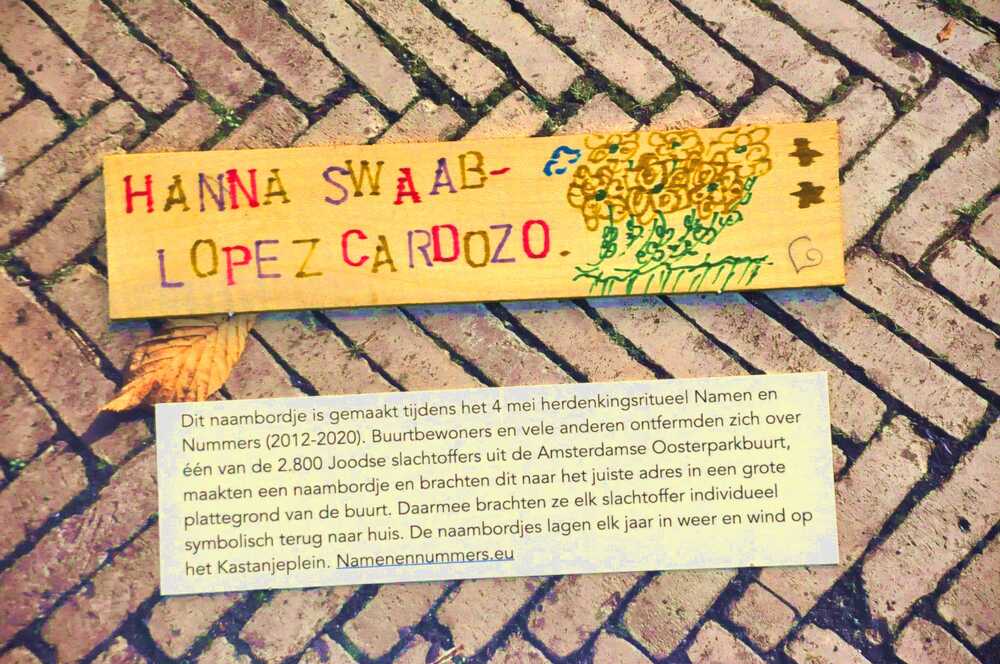 HANNA SWAAB-
LOPEZ CARDOZO.
Dit naambordje is gemaakt tijdens het 4 mei herdenkingsritueel Namen en
Nummers (2012-2020). Buurtbewoners en vele anderen ontfermden zich over
één van de 2.800 Joodse slachtoffers uit de Amsterdamse Oosterparkbuurt,
maakten een naambordje en brachten dit naar het juiste adres in een grote
plattegrond van de buurt. Daarmee brachten ze elk slachtoffer individueel
symbolisch terug naar huis. De naambordjes lagen elk jaar in weer en wind op
het Kastanjeplein. Namenennummers.eu